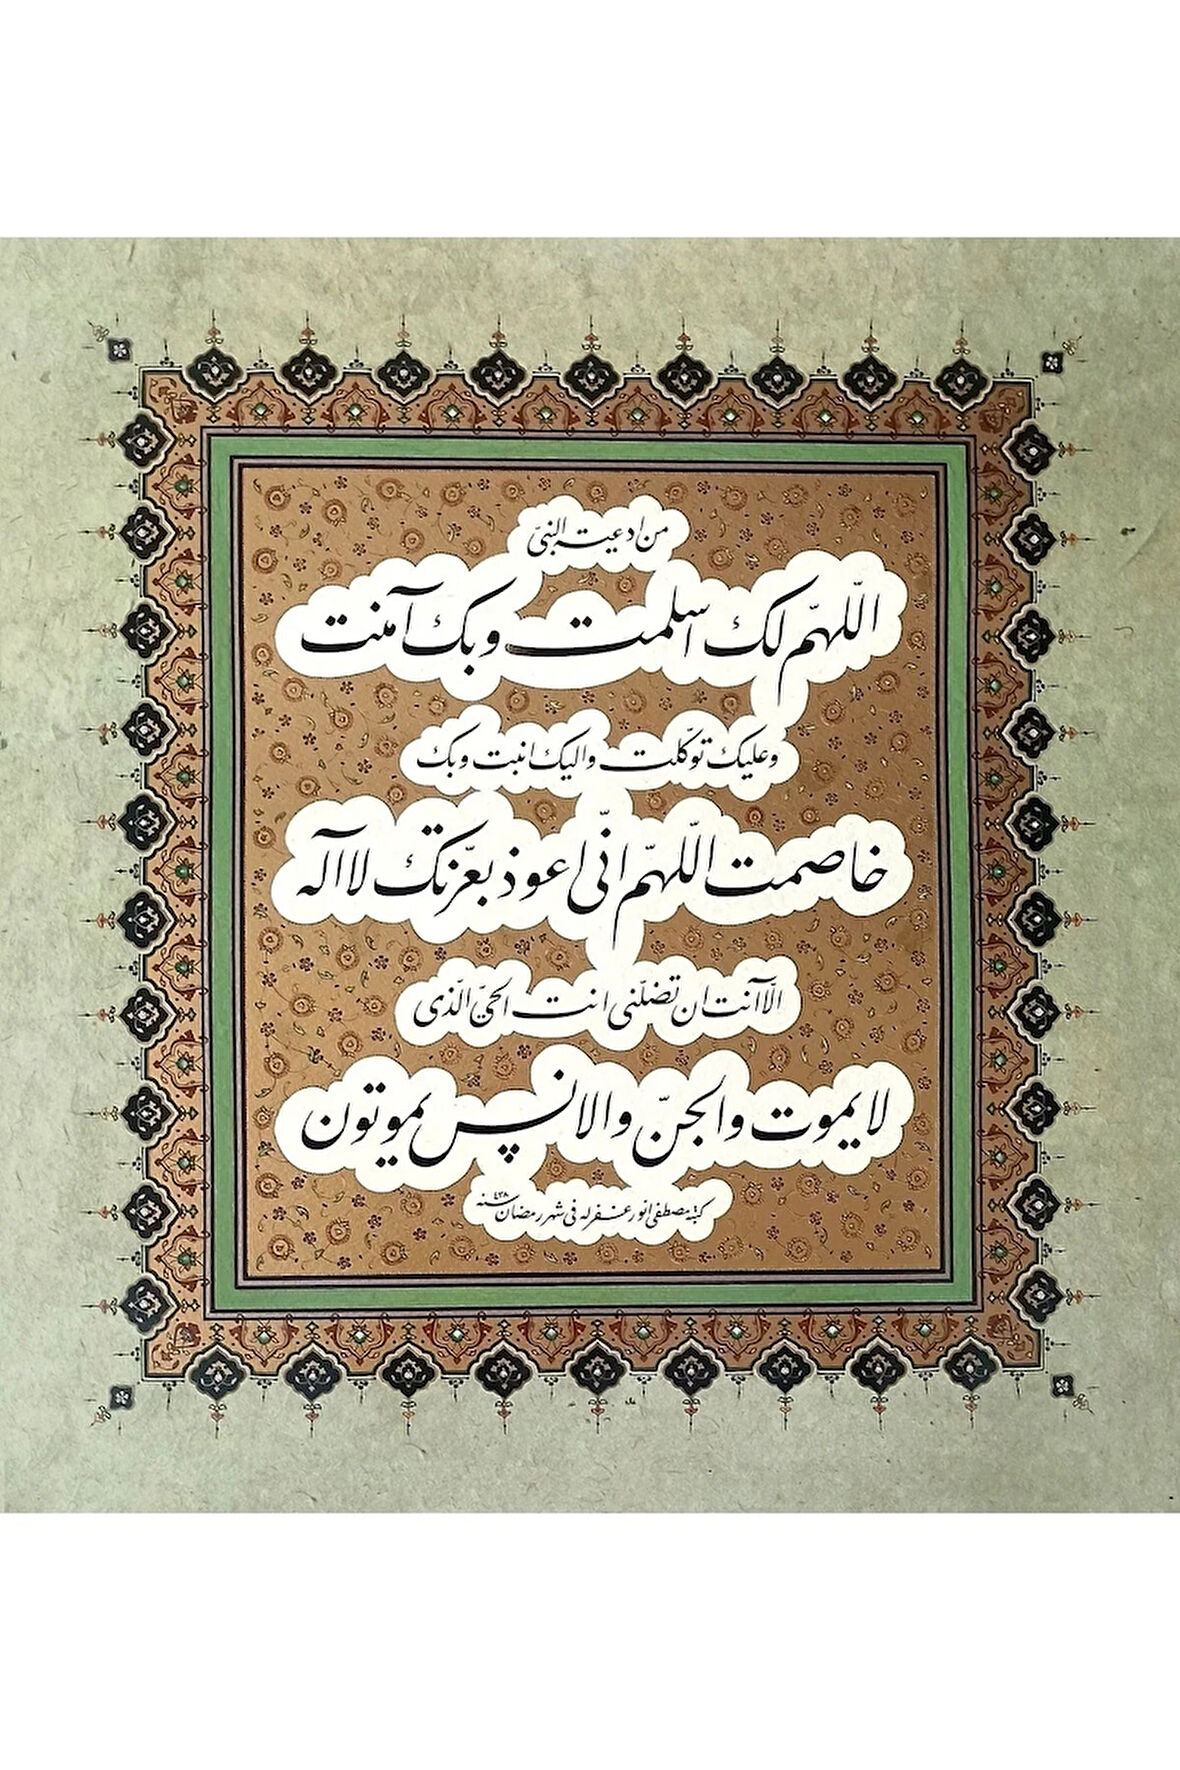 من ادعية النبىّ
اللّهمّ لك اسلمت وبك آمنت
وعليك توكّلت واليك انبت وبك
خاصمت اللّهمّ انّى اعوذ بعزتك لااله
الاانت ان تضلّنى انت الحىّ الّذى
لايموت والجنّ والانس يموتون
كتبه مصطفى انور غفر له فى شهر رمضان سنه ٤٣٨